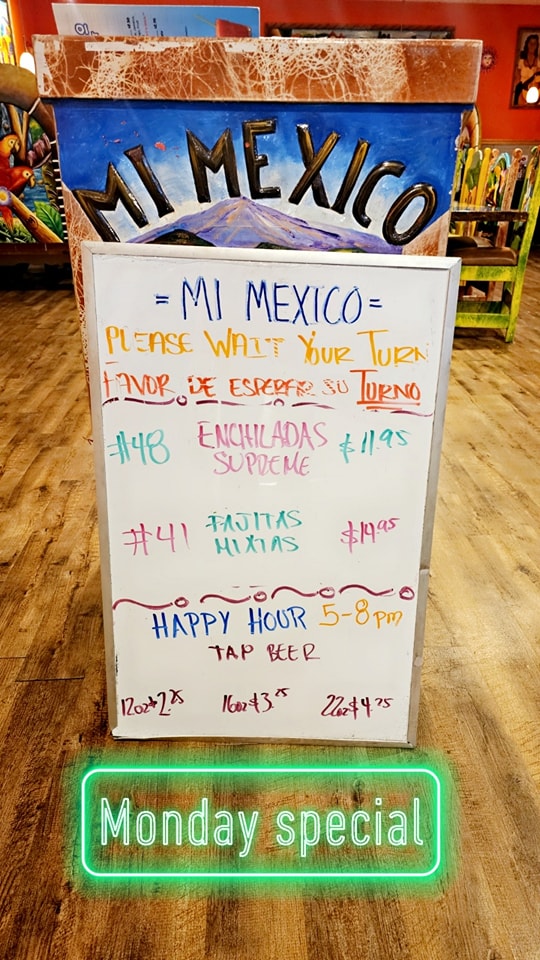 MI MEXICO
= MI MEXICO =
PLEASE WAIT YOUR TURN
FAVOR DE ESPERAR SU TURNO
#48 ENCHILADAS SUPREME $11.95
#41 FAJITAS MIXTAS $14.95
HAPPY HOUR 5-8 pm
TAP BEER
12oz $2.25 16oz $3.25 22oz $4.75
Monday special